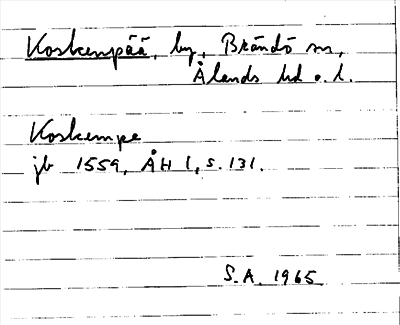 Koskenpää, by, Brändö sn,
Ålands hd o. l.
Koskempe
jb 1559, ÅH 1, s. 131.
S.A. 1965